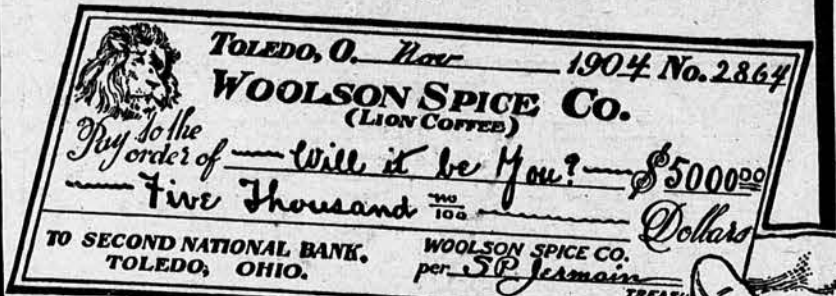 TOLEDO, O. Nov 1904 No. 2864
WOOLSON SPICE CO.
(LION COFFEE)
Pay to the order of Will it be You? $5000 00
Five Thousand no/100 Dollars
TO SECOND NATIONAL BANK. WOOLSON SPICE CO.
TOLEDO, OHIO. per S.P. Jermain